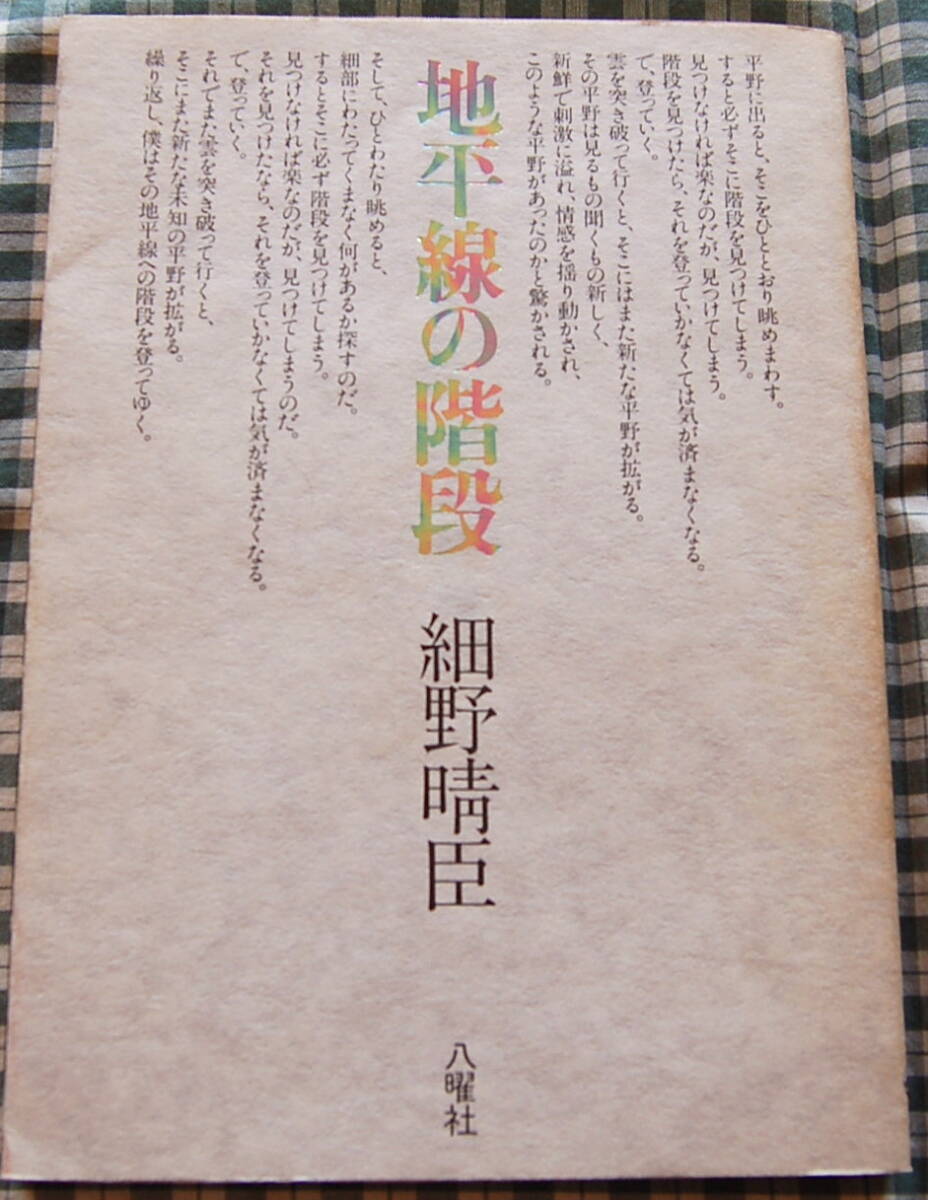 平野に出ると、そこをひととおり眺めまわす。
すると必ずそこに階段を見つけてしまう。
見つけなければ楽なのだが、見つけてしまう。
階段を見つけたら、それを登っていかなくては気が済まなくなる。
で、登っていく。
雲を突き破って行くと、そこにはまた新たな平野が拡がる。
その平野は見るもの聞くもの新しく、
新鮮で刺激に溢れ、情感を揺り動かされ、
このような平野があったのかと驚かされる。
地平線の階段
細野晴臣
八曜社
そして、ひとわたり眺めると、
細部にわたってくまなく何があるか探すのだ。
するとそこに必ず階段を見つけてしまう。
見つけなければ楽なのだが、見つけてしまうのだ。
それを見つけたなら、それを登っていかなくては気が済まなくなる。
で、登っていく。
それでまた雲を突き破って行くと、
そこにまた新たな未知の平野が拡がる。
繰り返し、僕はその地平線への階段を登ってゆく。